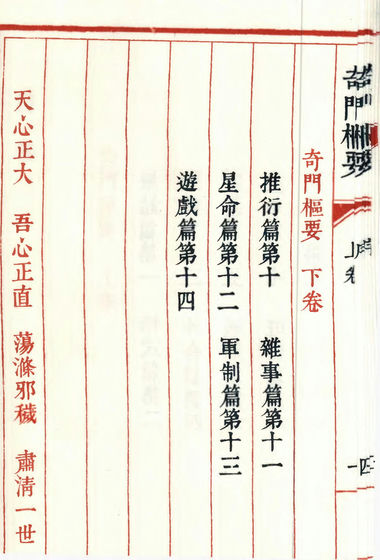 奇門樞要 上卷
奇門樞要 下卷
推衍篇第十 雜事篇第十一
星命篇第十二 軍制篇第十三
遊戲篇第十四
天心正大 吾心正直 蕩滌邪穢 肅清一世